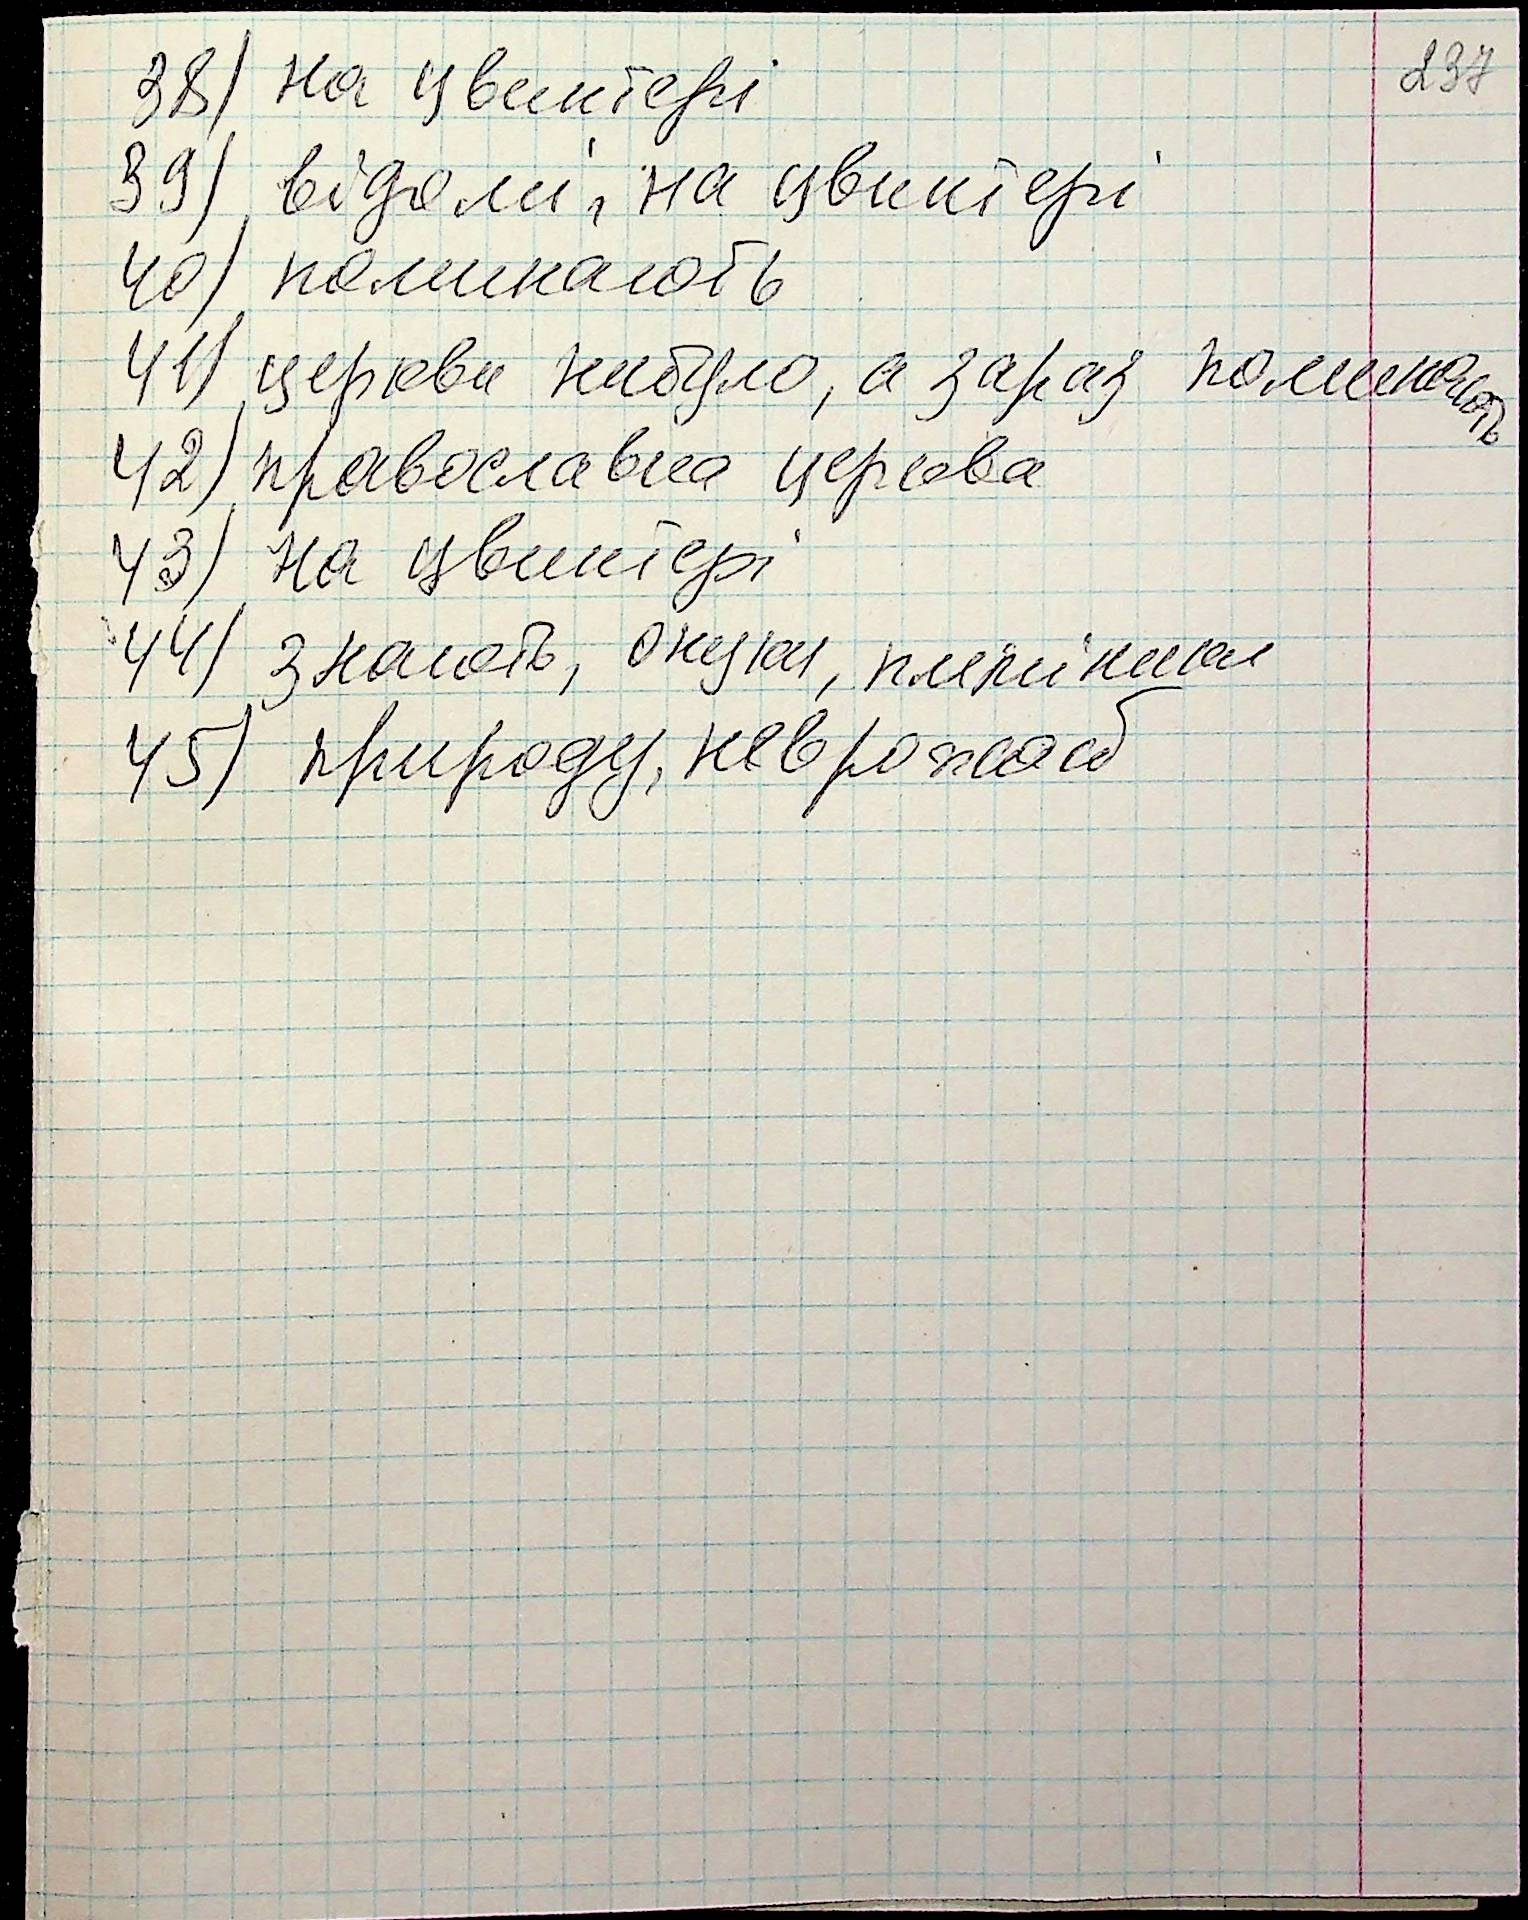 237
38) на цвинтері
39) відомі, на цвинтері
40) поминають
41) церкви небуло, а зараз поминають
42) православна церква
43) на цвинтері
44) знають, онуки, племінники
45) природу, неврожай